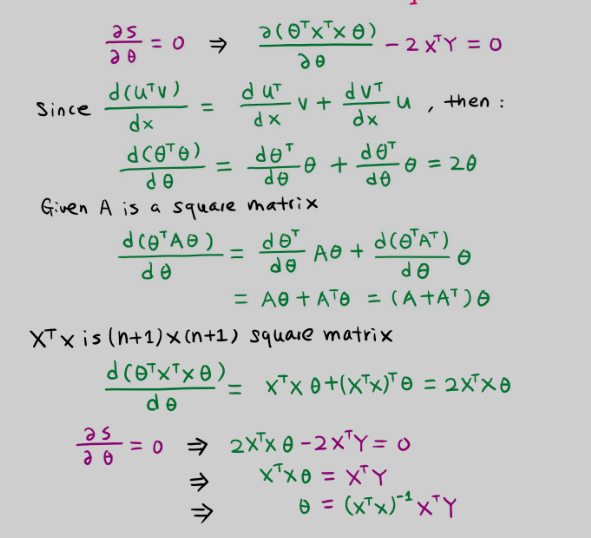 ∂S/∂θ = 0 ⇒ ∂(θᵀXᵀXθ)/∂θ - 2XᵀY = 0
Since d(uᵀv)/dx = duᵀ/dx v + dvᵀ/dx u , then :
d(θᵀθ)/dθ = dθᵀ/dθ θ + dθᵀ/dθ θ = 2θ
Given A is a square matrix
d(θᵀAθ)/dθ = dθᵀ/dθ Aθ + d(θᵀAᵀ)/dθ θ
= Aθ + Aᵀθ = (A+Aᵀ)θ
XᵀX is (n+1)×(n+1) square matrix
d(θᵀXᵀXθ)/dθ = XᵀXθ+(XᵀX)ᵀθ = 2XᵀXθ
∂S/∂θ = 0 ⇒ 2XᵀXθ-2XᵀY = 0
⇒ XᵀXθ = XᵀY
⇒ θ = (XᵀX)⁻¹XᵀY